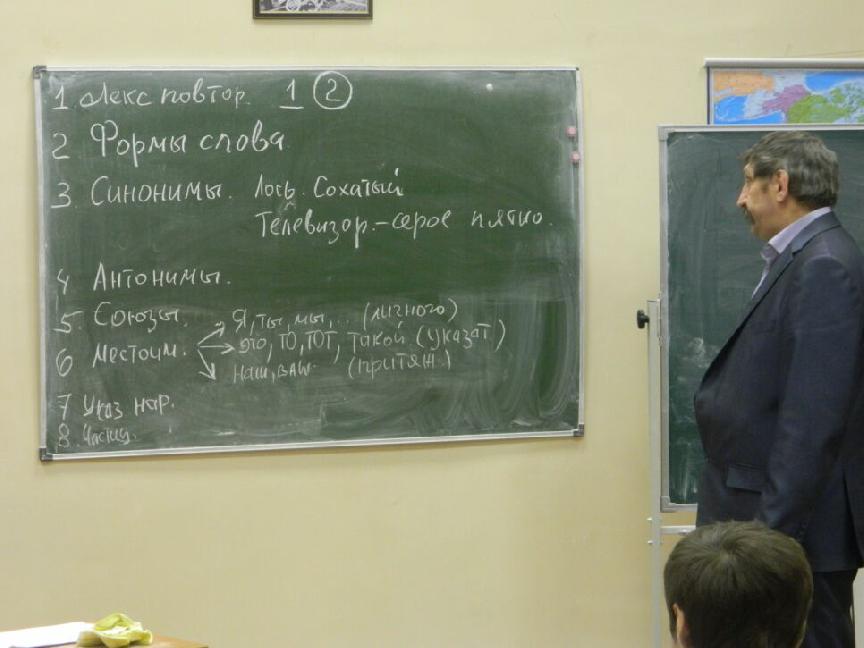 1 Лекс повтор. 1 2
2 Формы слова
3 Синонимы. Лось. Сохатый
Телевизор.-серое пятно.
4 Антонимы.
5. Союзы.
Я, ты, мы,... (личного)
6 Местоим. это, ТО, ТОТ, такой (указат)
наш, ваш. (притяж.)
7 Указ нар.
8 Частиц.